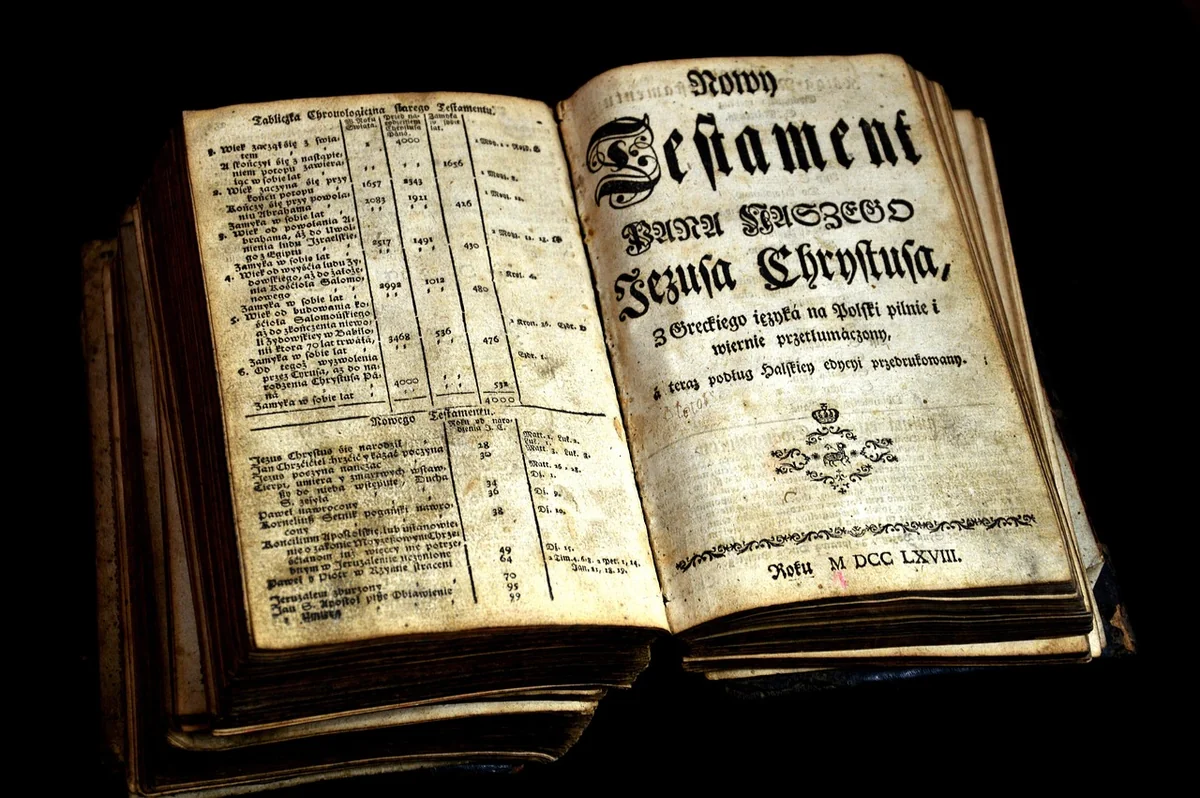 Tabliczka Chronologiczna starego Testamentu.
W Roku Swiata. Przed narodzeniem Chrystusa Pána. Zámyka w sobie lat.
1. Wiek zacząłsię z świa-
tem 1 4000 1 Moy. 1.
A skończył się z nastąpie-
niem potopu zawiera-
iąc w sobie lat 1656
2. Wiek zaczyna się przy
końcu potopu 1657 2343
Kończy się przy powoła-
niu Abrahama 2083 1921
Zamyka w sobie lat 426
3. Wiek od powołania A-
brahama, áż do Uwol-
nienia ludu Izraelskie-
go z Egiptu 2517 1491
Zamyka w sobie lat 430
4. Wiek od wyyścia ludu Zy-
dowskiego, aż do założe-
nia Kościoła Salomo-
nowego 2992 1012 1 Krol. 6.
Zamyka w sobie lat 480
5. Wiek od budowania ko-
ścioła Salomońskiego
aż do zkończenia niewo-
li Zydowskiey w Babilo-
nii ktora 70 lat trwáła, 3468 536
Zamyka w sobie lat 476
6. Od tegoż wyzwolenia Ezdr. 1.
przez Cyrusa, áż do na-
rodzenia Chrystusa Pá-
na 4000
Zamyka w sobie lat 532
4000
Nowego Testamentu.
Roku od naro-
dzenia J. C.
Jezus Chrystus się narodził Matt. 1. Luk. 2.
Jan Chrzciciel chrzcić y kázáć poczyna 28 Matt. 3. Luk. 3.
Jezus poczyna nauczać 30
Cierpi, umiera y zmartwych wstaw.
szy do nieba wstępuie, Ducha
S. zesyła 34 Dz. 1.
Paweł nawrocony 36 Dz. 9.
Korneliusz Setnik pogański nawro-
cony 38 Dz. 10.
Koncilium Apostolskie, lub ustanowie-
nie o zakonie Moyzeszowym Chrze-
ścianom
bnym w Jeruzalem uczynione 49 Dz. 15.
Paweł y Piotr w Rzymie straceni 64
Jeruzalem zburzony 70
Jan S. Apostoł pisze Obiawienie 95
Umiera 99
Nowy
Testament
PANA NASZEGO
Jezusa Chrystusa,
Z Greckiego ięzyká na Polski pilnie i
wiernie przetłumáczony,
á teraz podług Halskiey edycyi przedrukowany.
Roku M DCC LXVIII.